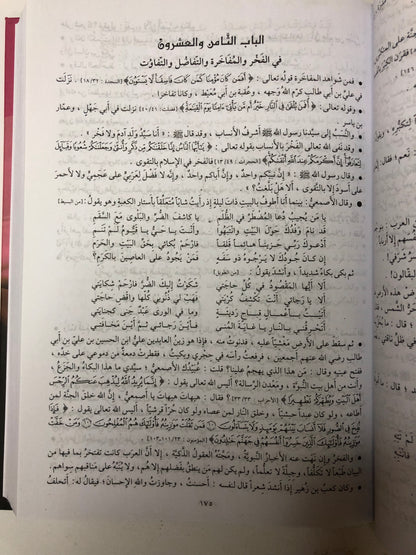 الباب الثامن والعشرون
في الفخر والمفاخرة والتفاضل والتفاوت
• فمن شواهد المفاخرة قوله تعالى: ﴿أَفَمَن كَانَ مُؤْمِنًا كَمَن كَانَ فَاسِقًا لَّا يَسْتَوُونَ﴾ [السجدة: ١٨/٣٢]، نزلت
في علي بن أبي طالب كرم الله وجهه، وعقبة بن أبي معيط، وكانا تفاخرا.
• وقوله تعالى: ﴿أَفَمَن يُلْقَىٰ فِي النَّارِ خَيْرٌ أَم مَّن يَأْتِي آمِنًا يَوْمَ الْقِيَامَةِ﴾ [فصلت: ٤٠/٤١] نزلت في أبي جهل، وعمار
بن ياسر
• والنسب إلى سيدنا رسول الله ﷺ أشرف الأنساب، وقد قال ﷺ: «أنا سيد ولد آدم ولا فخر».
• وقد نفى الله تعالى الفخر بالأنساب بقوله تعالى: ﴿يَا أَيُّهَا النَّاسُ إِنَّا خَلَقْنَاكُم مِّن ذَكَرٍ وَأُنثَىٰ وَجَعَلْنَاكُمْ شُعُوبًا وَقَبَائِلَ
لِتَعَارَفُوا إِنَّ أَكْرَمَكُمْ عِندَ اللَّهِ أَتْقَاكُمْ﴾ [الحجرات: ١٣/٤٩] فالفخر في الإسلام بالتقوى.
• وقال رسول الله ﷺ: «إن نبيكم واحد، وإن أباكم واحد، وإنه لا فضل لعربي على عجمي ولا لأحمر
على أسود إلا بالتقوى، ألا هل بلغت؟».
• وقال الأصمعي: بينما أنا أطوف بالبيت ذات ليلة إذ رأيت شابا متعلقا بأستار الكعبة وهو يقول: [من البسيط]
يا من يجيب دعا المضطر في الظلم يا كاشف الضر والبلوى مع السقم
قد نام وفدك حول البيت وانتبهوا وأنت يا حي يا قيوم لم تنم
أدعوك ربي حزينا هائما قلقا فارحم بكائي بحق البيت والحرم
إن كان جودك لا يرجوه ذو سفه فمن يجود على العاصين بالكرم؟
ثم بكى بكاء شديدا، وأنشد يقول: [من الطويل]
ألا أيها المقصود في كل حاجتي شكوت إليك الضر فارحم شكايتي
ألا يا رجائي أنت تكشف كربتي فهب لي ذنوبي كلها واقض حاجتي
أتيت بأعمال قباح رديئة وما في الورى عبد جنى كجنايتي
أتحرقني بالنار يا غاية المنى فأين رجائي ثم أين مخافتي
• ثم سقط على الأرض مغشيا عليه، فدنوت منه، فإذا هو زين العابدين علي بن الحسين بن علي بن أبي
طالب رضي الله عنهم أجمعين، فرفعت رأسه في حجري وبكيت، فقطرت دمعة من دموعي على خده،
ففتح عينيه وقال: من هذا الذي يهجم علينا؟ قلت: عبيدك الأصمعي، سيدي ما هذا البكاء والجزع،
وأنت من أهل بيت النبوة، ومعدن الرسالة؟ أليس الله تعالى يقول: ﴿إِنَّمَا يُرِيدُ اللَّهُ لِيُذْهِبَ عَنكُمُ الرِّجْسَ
أَهْلَ الْبَيْتِ وَيُطَهِّرَكُمْ تَطْهِيرًا﴾ [الأحزاب: ٣٣/٣٣]، فقال: هيهات هيهات يا أصمعي، إن الله خلق الجنة لمن
أطاعه، ولو كان عبدا حبشيا، وخلق النار لمن عصاه ولو كان حرا قرشيا، أليس الله تعالى يقول: ﴿فَإِذَا
نُفِخَ فِي الصُّورِ فَلَا أَنسَابَ بَيْنَهُمْ يَوْمَئِذٍ وَلَا يَتَسَاءَلُونَ ۝ فَمَن ثَقُلَتْ مَوَازِينُهُ فَأُولَٰئِكَ هُمُ الْمُفْلِحُونَ ۝ وَمَنْ خَفَّتْ
مَوَازِينُهُ فَأُولَٰئِكَ الَّذِينَ خَسِرُوا أَنفُسَهُمْ فِي جَهَنَّمَ خَالِدُونَ﴾ [المؤمنون: ١٠١/٢٣-١٠٣].
• والفخر وإن نهت عنه الأخبار النبوية، ومجته العقول الذكية، إلا أن العرب كانت تفتخر بما فيها من
البيان طبعا لا تكلفا، وجبلة لا تعلما، ولم يكن لهم من ينطق بفضلهم إلا هم، ولا ينبه على مناقبهم سواهم.
• وكان كعب بن زهير إذا أنشد شعرا قال لنفسه: أحسنت، وجاوزت والله الإحسان؛ فيقال له: أتحلف
١٧٥